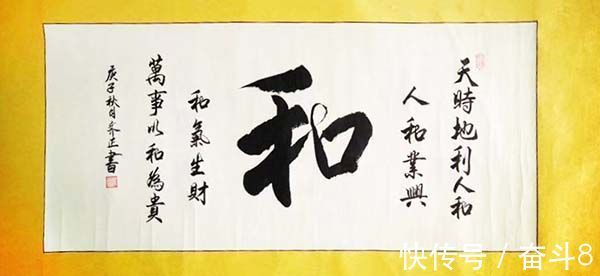 天時地利人和
人和業興
和
和氣生財
萬事以和為貴
庚子秋日乔正書
快传号 / 奋斗8